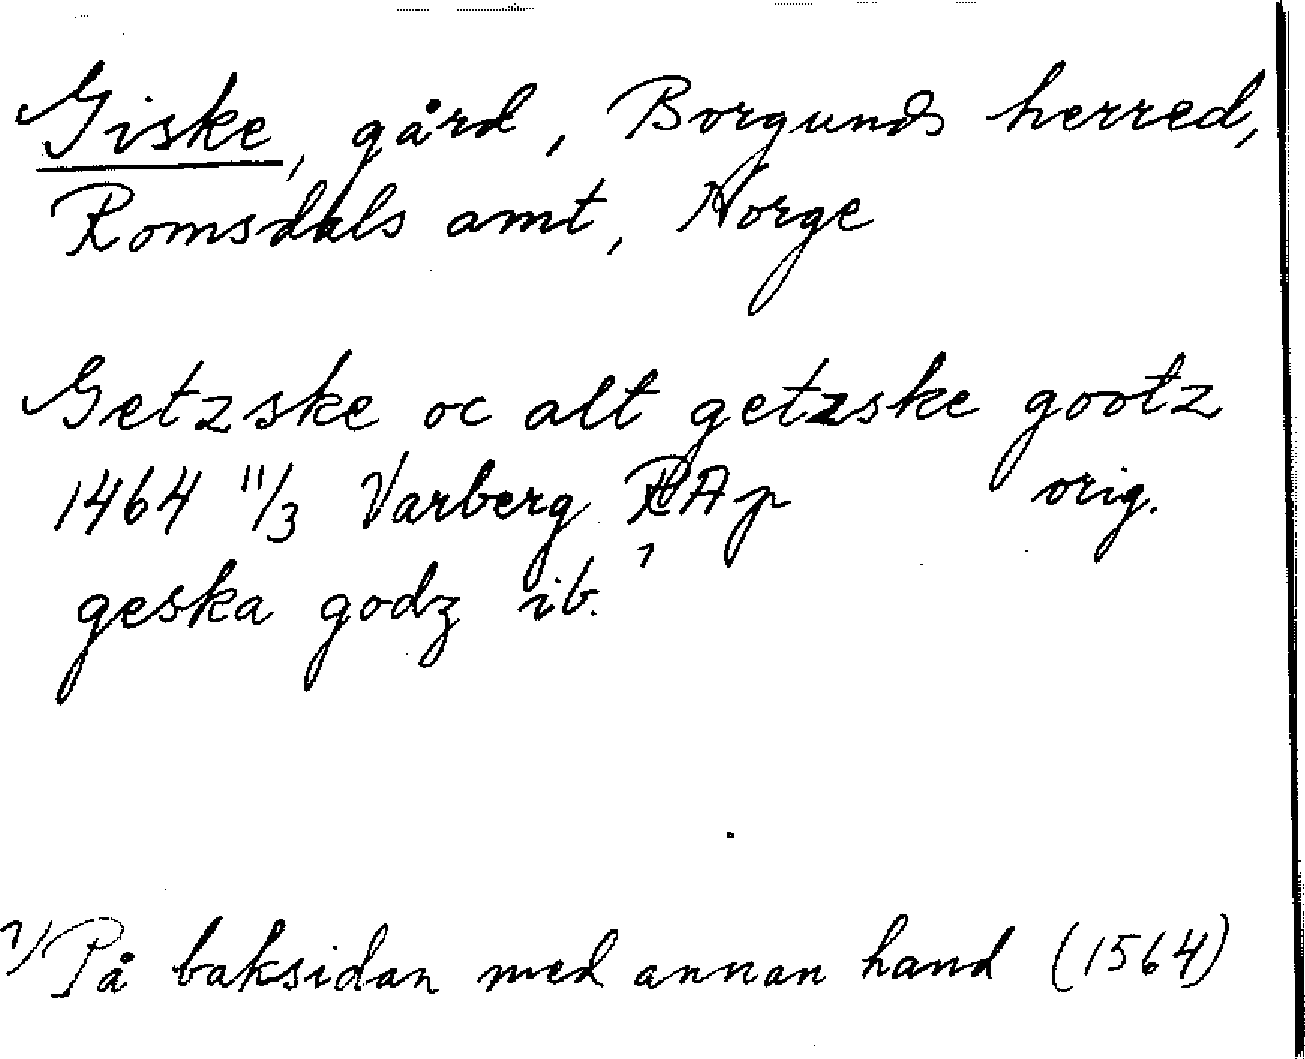 Giske, gård, Borgunds herred,
Romsdals amt, Norge
Getzske oc alt getzske gootz
1464 11/3 Varberg RAp orig.
geska godz ib.1
1) På baksidan med annan hand (1564)